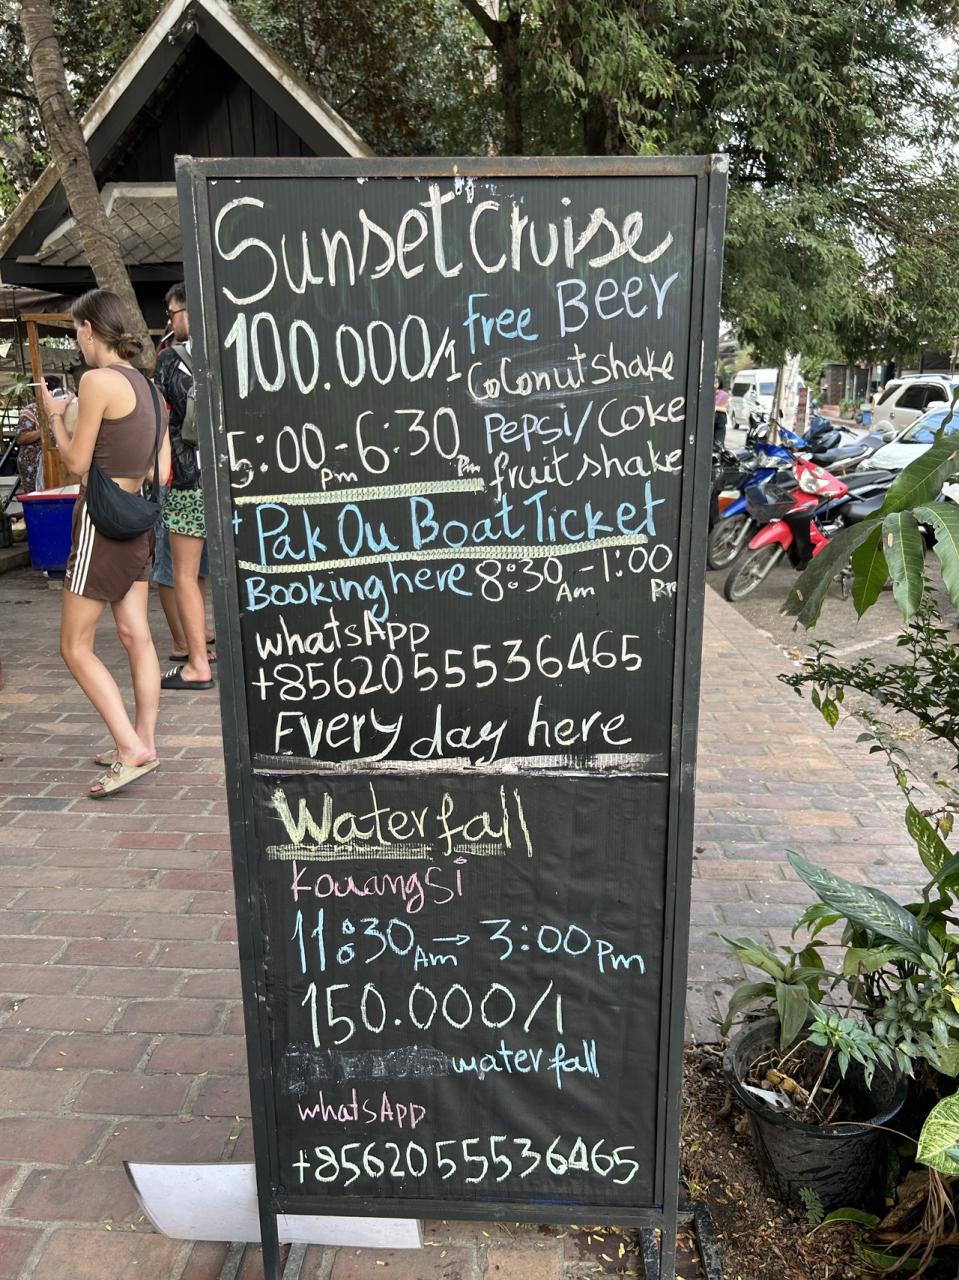 Sunset Cruise
100.000/1
free Beer
Coconut shake
5:00pm-6:30pm
Pepsi/Coke
fruit shake
Pak Ou Boat Ticket
Booking here 8:30Am-1:00Pm
whatsApp
+8562055536465
Every day here
Waterfall
kouangsi
11:30Am→3:00pm
150.000/1
waterfall
whatsApp
+8562055536465